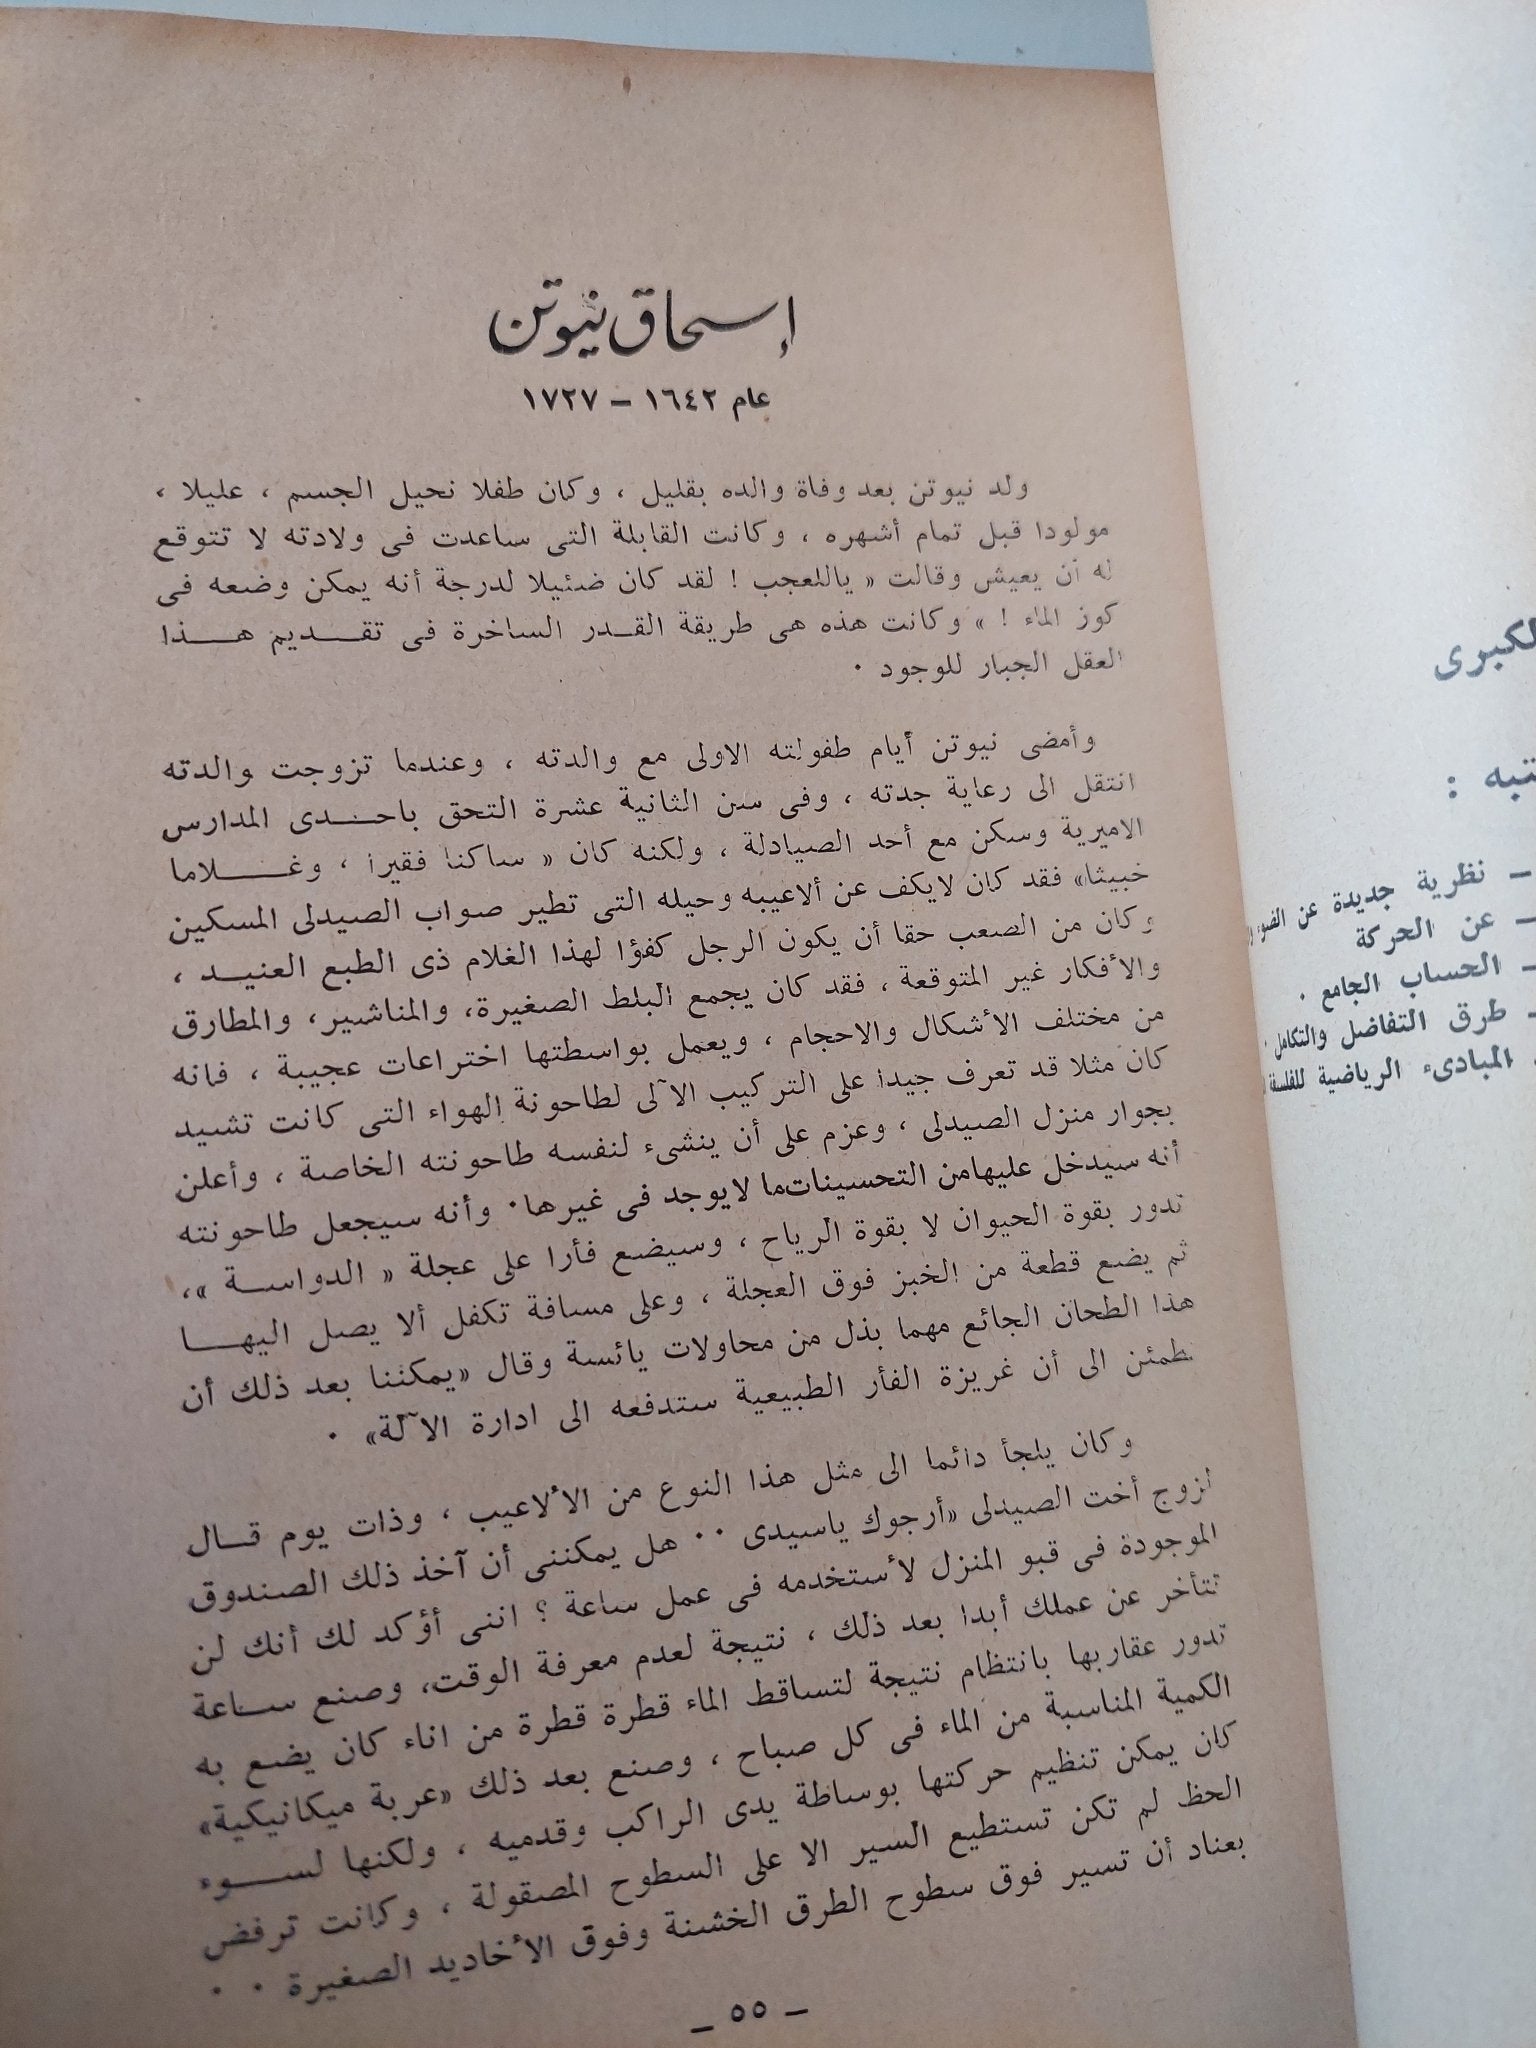 إسحاق نيوتن
عام ١٦٤٢ – ١٧٢٧
ولد نيوتن بعد وفاة والده بقليل ، وكان طفلا نحيل الجسم ، عليلا ،
مولودا قبل تمام أشهره ، وكانت القابلة التى ساعدت فى ولادته لا تتوقع
له أن يعيش وقالت « ياللعجب ! لقد كان ضئيلا لدرجة أنه يمكن وضعه فى
كوز الماء ! » وكانت هذه هى طريقة القدر الساخرة فى تقديم هذا
العقل الجبار للوجود .
وأمضى نيوتن أيام طفولته الاولى مع والدته ، وعندما تزوجت والدته
انتقل الى رعاية جدته ، وفى سن الثانية عشرة التحق باحدى المدارس
الاميرية وسكن مع أحد الصيادلة ، ولكنه كان « ساكنا فقيرا ، وغلاما
خبيثا» فقد كان لايكف عن ألاعيبه وحيله التى تطير صواب الصيدلى المسكين
وكان من الصعب حقا أن يكون الرجل كفؤا لهذا الغلام ذى الطبع العنيد ،
والأفكار غير المتوقعة ، فقد كان يجمع البلط الصغيرة، والمناشير، والمطارق
من مختلف الأشكال والاحجام ، ويعمل بواسطتها اختراعات عجيبة ، فانه
كان مثلا قد تعرف جيدا على التركيب الآلى لطاحونة الهواء التى كانت تشيد
بجوار منزل الصيدلى ، وعزم على أن ينشىء لنفسه طاحونته الخاصة ، وأعلن
أنه سيدخل عليهامن التحسينات ما لايوجد فى غيرها. وأنه سيجعل طاحونته
تدور بقوة الحيوان لا بقوة الرياح ، وسيضع فأرا على عجلة « الدواسة »،
ثم يضع قطعة من الخبز فوق العجلة ، وعلى مسافة تكفل ألا يصل اليها
هذا الطحان الجائع مهما بذل من محاولات يائسة وقال «يمكننا بعد ذلك أن
نطمئن الى أن غريزة الفأر الطبيعية ستدفعه الى ادارة الآلة» .
وكان يلجأ دائما الى مثل هذا النوع من الألاعيب ، وذات يوم قال
لزوج أخت الصيدلى «أرجوك ياسيدى .. هل يمكننى أن آخذ ذلك الصندوق
الموجودة فى قبو المنزل لأستخدمه فى عمل ساعة ؟ اننى أؤكد لك أنك لن
تتأخر عن عملك أبدا بعد ذلك ، نتيجة لعدم معرفة الوقت، وصنع ساعة
تدور عقاربها بانتظام نتيجة لتساقط الماء قطرة قطرة من اناء كان يضع به
الكمية المناسبة من الماء فى كل صباح ، وصنع بعد ذلك «عربة ميكانيكية»
كان يمكن تنظيم حركتها بوساطة يدى الراكب وقدميه ، ولكنها لسوء
الحظ لم تكن تستطيع السير الا على السطوح المصقولة ، وكانت ترفض
بعناد أن تسير فوق سطوح الطرق الخشنة وفوق الأخاديد الصغيرة . .
– ٥٥ –
الكبرى
:
– نظرية جديدة عن الضوء
– عن الحركة
– الحساب الجامع .
– طرق التفاضل والتكامل
المبادىء الرياضية للفلسفة